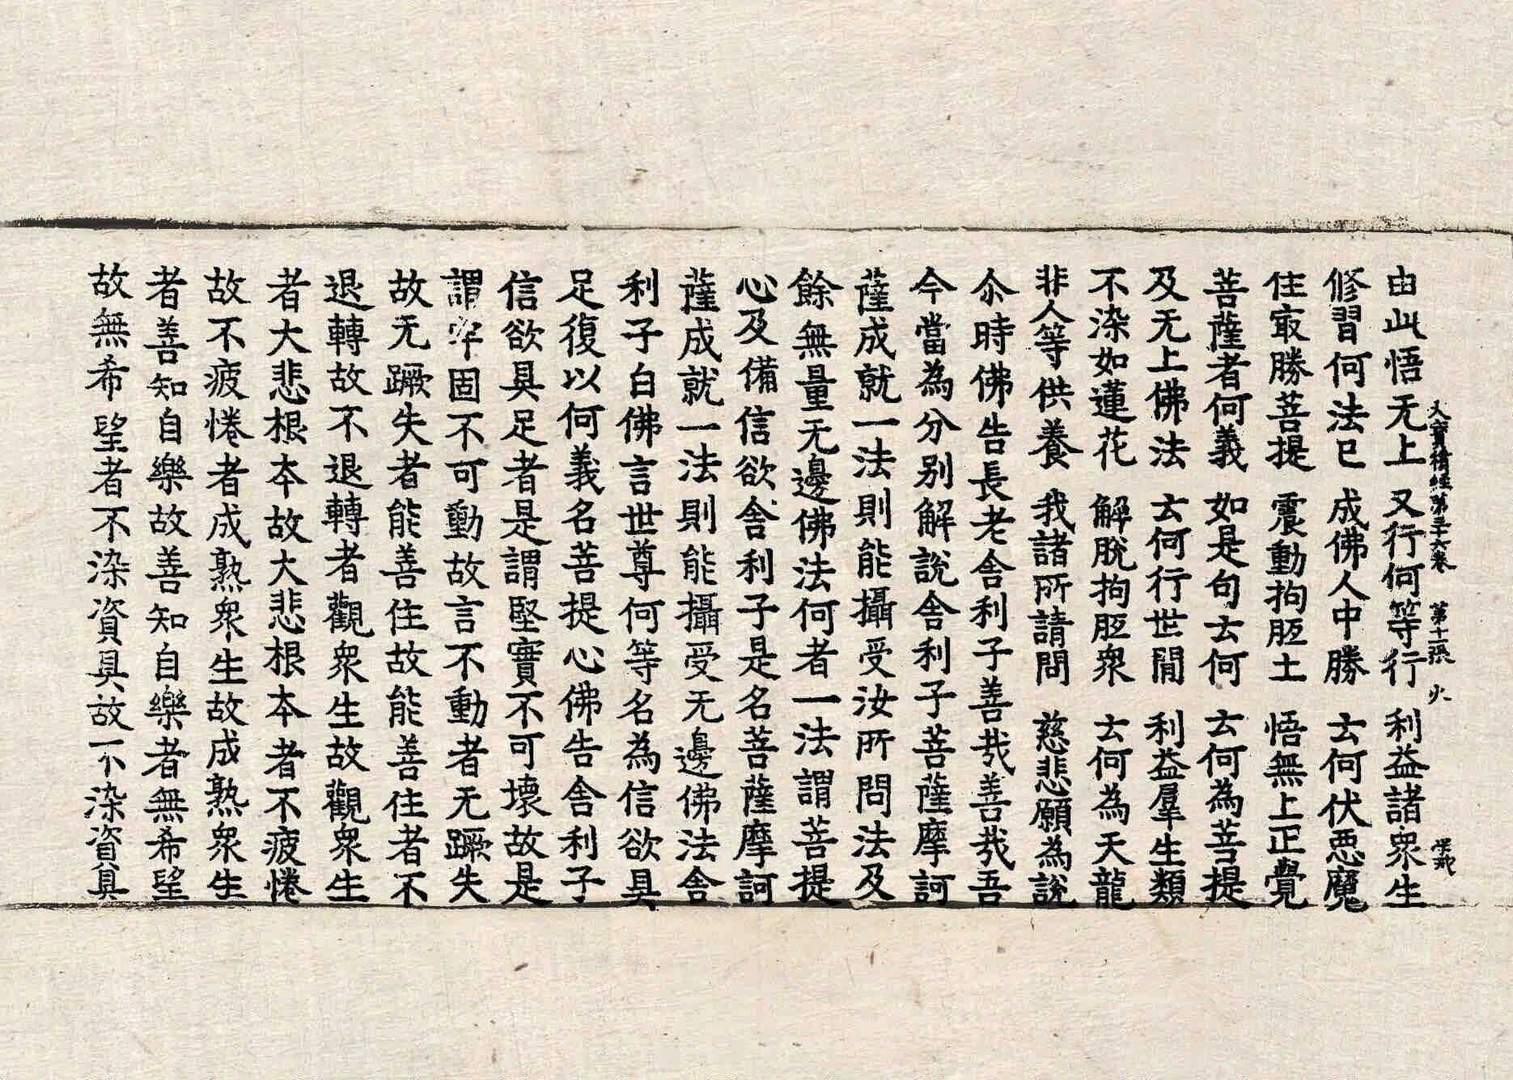 大寶積經第三十六卷 第十一張 火
由此悟无上 又行何等行 利益諸衆生
修習何法已 成佛人中勝 去何伏恶魔
住㝡勝菩提 震動拘胝土 悟無上正覺
菩薩者何義 如是句去何 去何為菩提
及无上佛法 去何行世間 利益羣生類
不染如蓮花 解脫拘胝衆 去何為天龍
非人等供養 我諸所請問 慈悲願為說
尒時佛告長老舍利子善㦲善㦲吾
今當為分别解說舍利子菩薩摩訶
薩成就一法則能攝受汝所問法及
餘無量无邊佛法何者一法謂菩提
心及備信欲舍利子是名菩薩摩訶
薩成就一法則能攝受无邊佛法舍
利子白佛言世尊何等名為信欲具
足復以何義名菩提心佛告舍利子
信欲具足者是謂堅實不可壞故是
謂牢固不可動故言不動者无蹶失
故无蹶失者能善住故能善住者不
退轉故不退轉者觀衆生故觀衆生
者大悲根本故大悲根本者不疲惓
故不疲惓者成熟衆生故成熟衆生
者善知自樂故善知自樂者無希望
故無希望者不染資具故不染資具